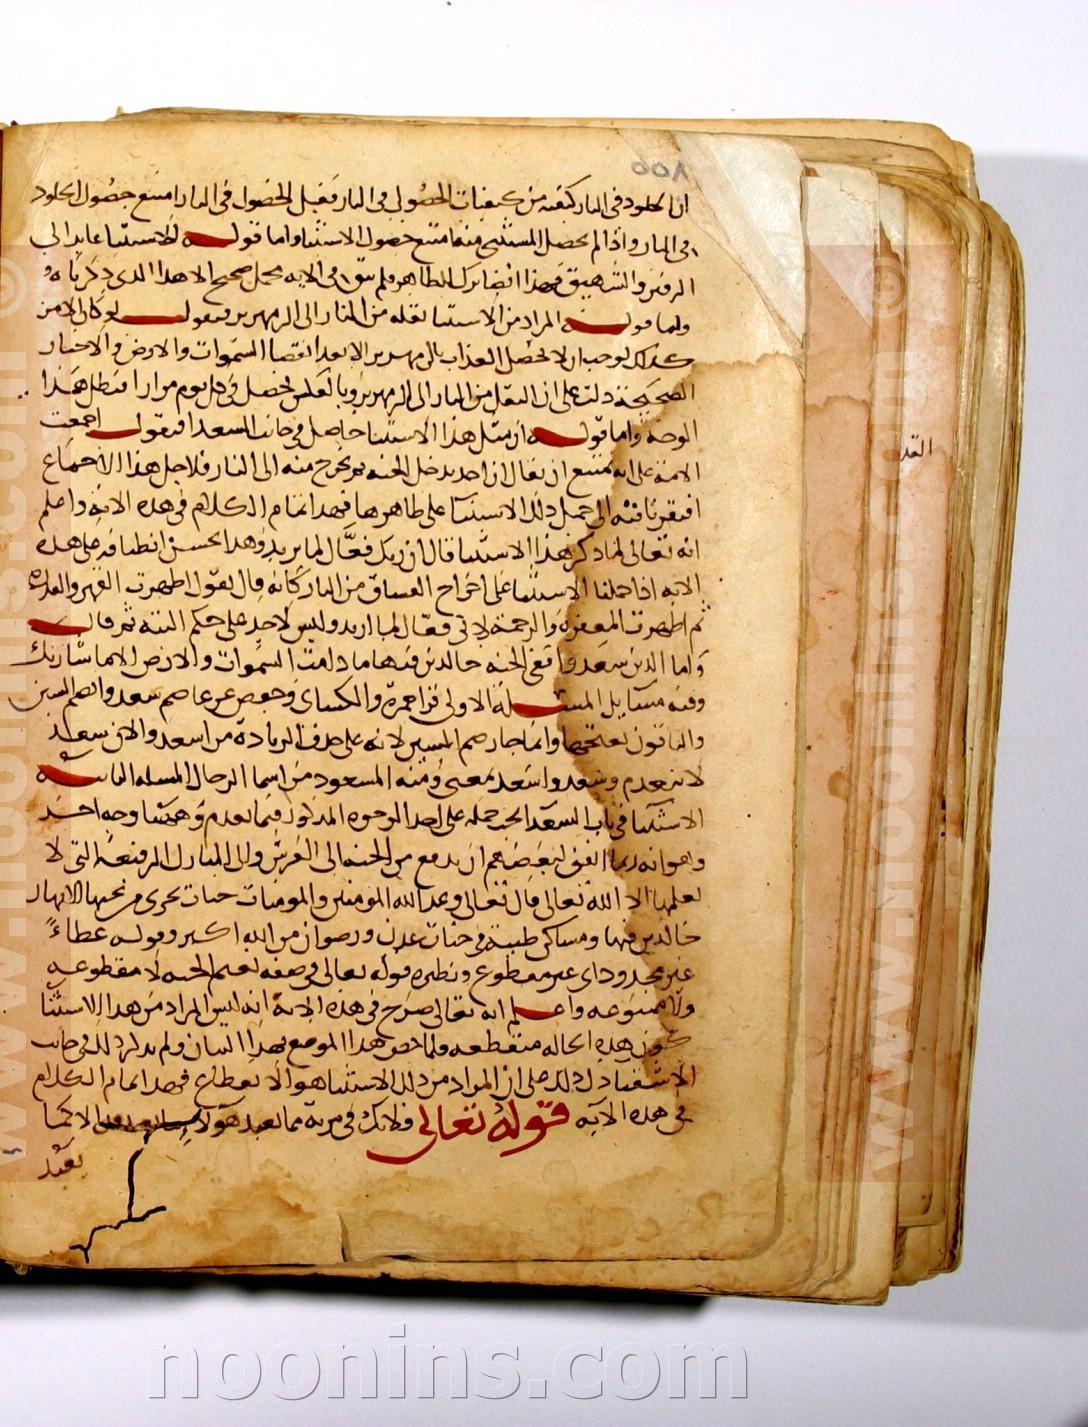 ٨٥٥
ان الخلود فى النار كيفية من كيفيات الحصول فى النار فقبل الحصول فى النار امتنع حصول الخلود
فى النار واذا لم يحصل المستثنى منه امتنع حصول الاستثنا واما قوله الاستثنا عايد الى
الزفير والشهيق فهذا ايضا ترك للظاهر فلم يبق فى الايه محمل صحيح الا هذا الذى ذكرناه
واما قوله المراد من الاستثنا نقله من النار الى الزمهرير فنقول لو كان الامر
كذلك لوجب ان لا يحصل العذاب بالزمهرير الا بعد انقضا السموات والارض والاخبار
الصحيحة دلت على ان النقل من النار الى الزمهرير وبالعكس يحصل فى كل يوم مرارا فبطل هذا
الوجه واما قوله ان مثل هذا الاستثنا حاصل فى جانب السعدا فنقول اجمعت
الامة على انه يمتنع ان يقال ان احد يدخل الجنه ثم يخرج منه الى النار فلاجل هذا الاجماع
افتقرنا فيه الى حمل ذلك الاستثنا على ظاهرها فهذا تمام الكلام فى هذه الايه واعلم
انه تعالى لما ذكر هذا الاستثنا قال ان ربك فعال لما يريد وهذا يحسن انطباقه على هذه
الايه اذا حملنا الاستثنا على اخراج الفساق من النار كانه قال يقول اظهرت القهر والقدره
ثم اظهرت المغفرة والرحمة لانى فعال لما اريد وليس لاحد على حكم البتة ثم قال
واما الذين سعدوا ففى الجنه خالدين فيها ما دامت السموات والارض الا ما شا ربك
وفيه مسايل المسئلة الاولى قرا حمزة والكساى وحفص عن عاصم سعدوا بضم السين
والباقون بفتحها وانما جاز ضم السين لانه على حذف الزيادة من اسعد والان سعد
لا يتعدم وسعد واسعد بمعنى ومنه المسعود من اسما الرجال المسله الثانيه
الاستثنا فى باب السعدا يجب حمله على احد الوجوه المذكورة فيما تقدم وههنا وجه اخر
وهو انه ربما اتفق لبعضهم ان يرفع من الجنه الى العرش والى المنازل الرفيعة التى لا
يعلمها الا الله تعالى قال تعالى وعد الله المومنين والمومنات جنات تجرى من تحتها الانهار
خالدين فيها ومساكن طيبة فى جنات عدن ورضوان من الله اكبر وقوله عطاءً
غير مجذوذ اى غير مقطوع ونظيره قوله تعالى فى صفه نعيم الجنه لا مقطوعه
ولا ممنوعه واعلم انه تعالى صرح فى هذه الايه انه ليس المراد من هذا الاستثنا
كون هذه الحاله منقطعه فلما خص هذا الموضع بهذا البيان ولم يذكر ذلك فى جانب
الاشقيا دل ذلك على ان المراد من ذلك الاستثنا هو الانقطاع فهذا تمام الكلام
فى هذه الايه قوله تعالى فلا تك فى مرية مما يعبد هولا الا كما
يعبد
القد
www.noonins.com ©
noonins.com